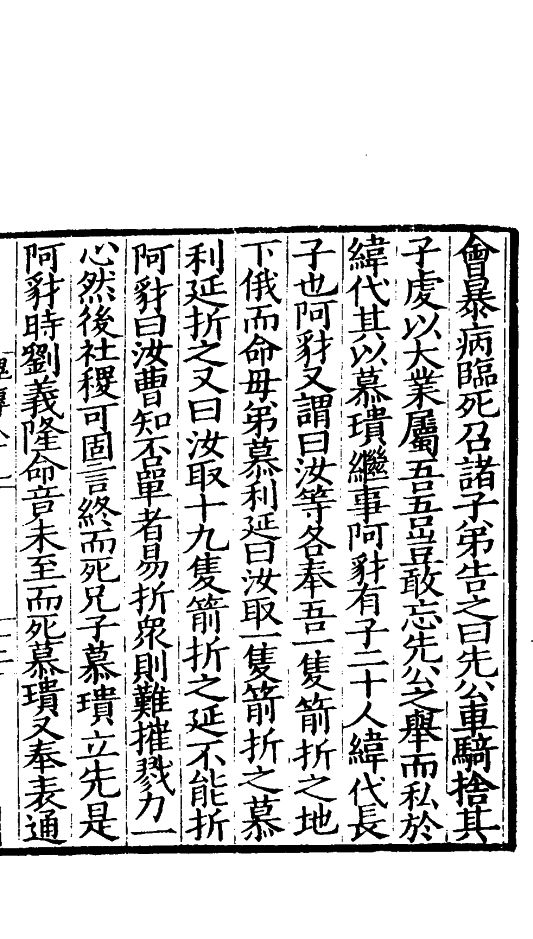 會暴病臨死召諸子弟告之曰先公車騎捨其
子虔以大業屬吾吾豈敢忘先公之舉而私於
緯代其以慕璝繼事阿豺有子二十人緯代長
子也阿豺又謂曰汝等各奉吾一隻箭折之地
下俄而命母弟慕利延曰汝取一隻箭折之慕
利延折之又曰汝取十九隻箭折之延不能折
阿豺曰汝曹知否單者易折衆則難摧戮力一
心然後社稷可固言終而死兄子慕璝立先是
阿豺時劉義隆命竟未至而死慕璝又奉表通